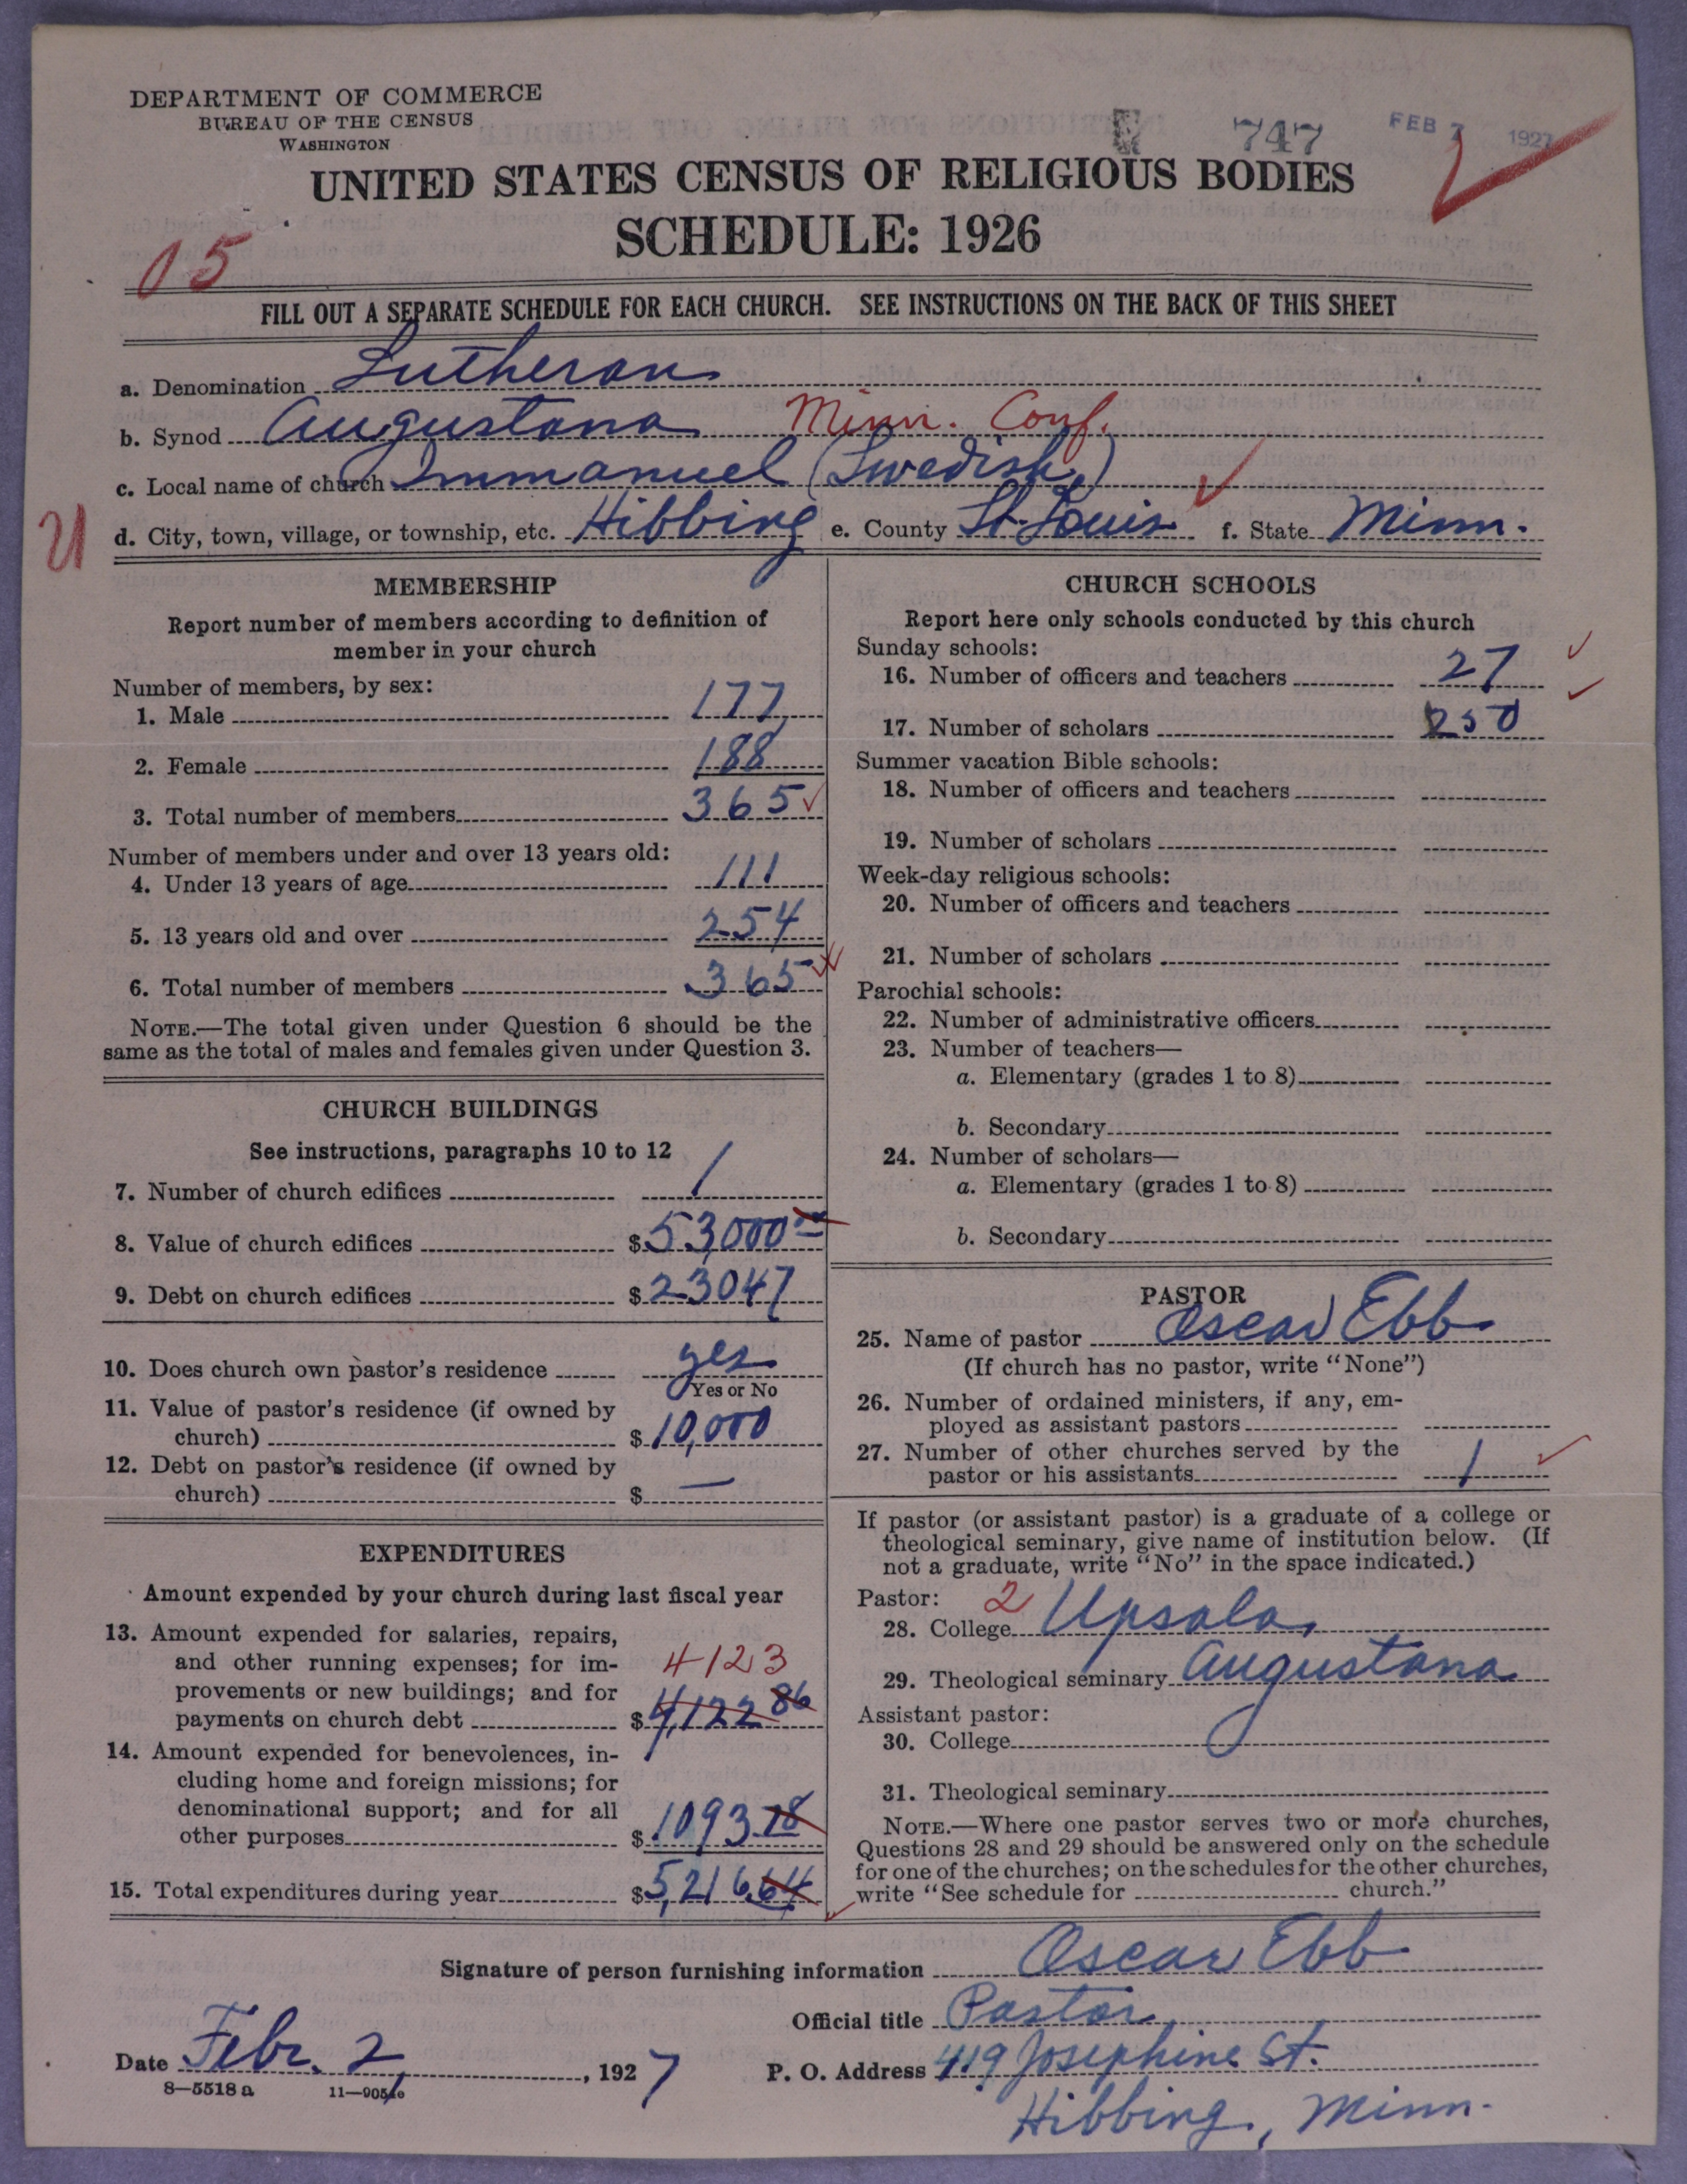 DEPARTMENT OF COMMERCE
BUREAU OF THE CENSUS
WASHINGTON
747
FEB 7 1927
UNITED STATES CENSUS OF RELIGIOUS BODIES
SCHEDULE: 1926
05
FILL OUT A SEPARATE SCHEDULE FOR EACH CHURCH. SEE INSTRUCTIONS ON THE BACK OF THIS SHEET
a. Denomination Lutheran
b. Synod Augustana Minn. Conf.
c. Local name of church Immanuel (Swedish)
d. City, town, village, or township, etc. Hibbing e. County St. Louis f. State Minn.
MEMBERSHIP
Report number of members according to definition of
member in your church
Number of members, by sex:
1. Male 177
2. Female 188
3. Total number of members 365
Number of members under and over 13 years old:
4. Under 13 years of age 111
5. 13 years old and over 254
6. Total number of members 365
NOTE.—The total given under Question 6 should be the
same as the total of males and females given under Question 3.
CHURCH BUILDINGS
See instructions, paragraphs 10 to 12
7. Number of church edifices 1
8. Value of church edifices $53,000
9. Debt on church edifices $23047
10. Does church own pastor's residence yes
Yes or No
11. Value of pastor's residence (if owned by
church) $10,000
12. Debt on pastor's residence (if owned by
church) $ —
EXPENDITURES
Amount expended by your church during last fiscal year
13. Amount expended for salaries, repairs,
and other running expenses; for im-
4123
provements or new buildings; and for
payments on church debt $4,122 86
14. Amount expended for benevolences, in-
cluding home and foreign missions; for
denominational support; and for all
other purposes $1093.78
15. Total expenditures during year $5,216.64
CHURCH SCHOOLS
Report here only schools conducted by this church
Sunday schools:
16. Number of officers and teachers 27
17. Number of scholars 250
Summer vacation Bible schools:
18. Number of officers and teachers
19. Number of scholars
Week-day religious schools:
20. Number of officers and teachers
21. Number of scholars
Parochial schools:
22. Number of administrative officers
23. Number of teachers—
a. Elementary (grades 1 to 8)
b. Secondary
24. Number of scholars—
a. Elementary (grades 1 to 8)
b. Secondary
PASTOR
25. Name of pastor Oscar Ebb
(If church has no pastor, write "None")
26. Number of ordained ministers, if any, em-
ployed as assistant pastors
27. Number of other churches served by the
pastor or his assistants 1
If pastor (or assistant pastor) is a graduate of a college or
theological seminary, give name of institution below. (If
not a graduate, write "No" in the space indicated.)
Pastor: 2
28. College Upsala
29. Theological seminary Augustana
Assistant pastor:
30. College
31. Theological seminary
NOTE.—Where one pastor serves two or more churches,
Questions 28 and 29 should be answered only on the schedule
for one of the churches; on the schedules for the other churches,
write "See schedule for church."
Signature of person furnishing information Oscar Ebb
Official title Pastor
Date Febr. 2, 1927
P. O. Address 419 Josephine St.
Hibbing, Minn.
8—5518 a